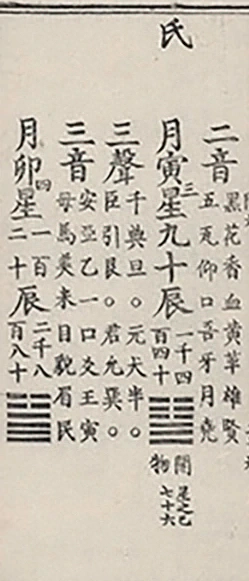 氏
二音
黑花香血黄華雄賢
五瓦仰口吾牙月堯
月寅三星九十辰
一千四
百四十
開物
星之己
七十六
三聲
千典旦○元犬半○
臣引艮○君允巽○
三音
安亞乙一口爻王寅
母馬美米目貌眉民
月卯四星一百二十辰
二千八
百八十